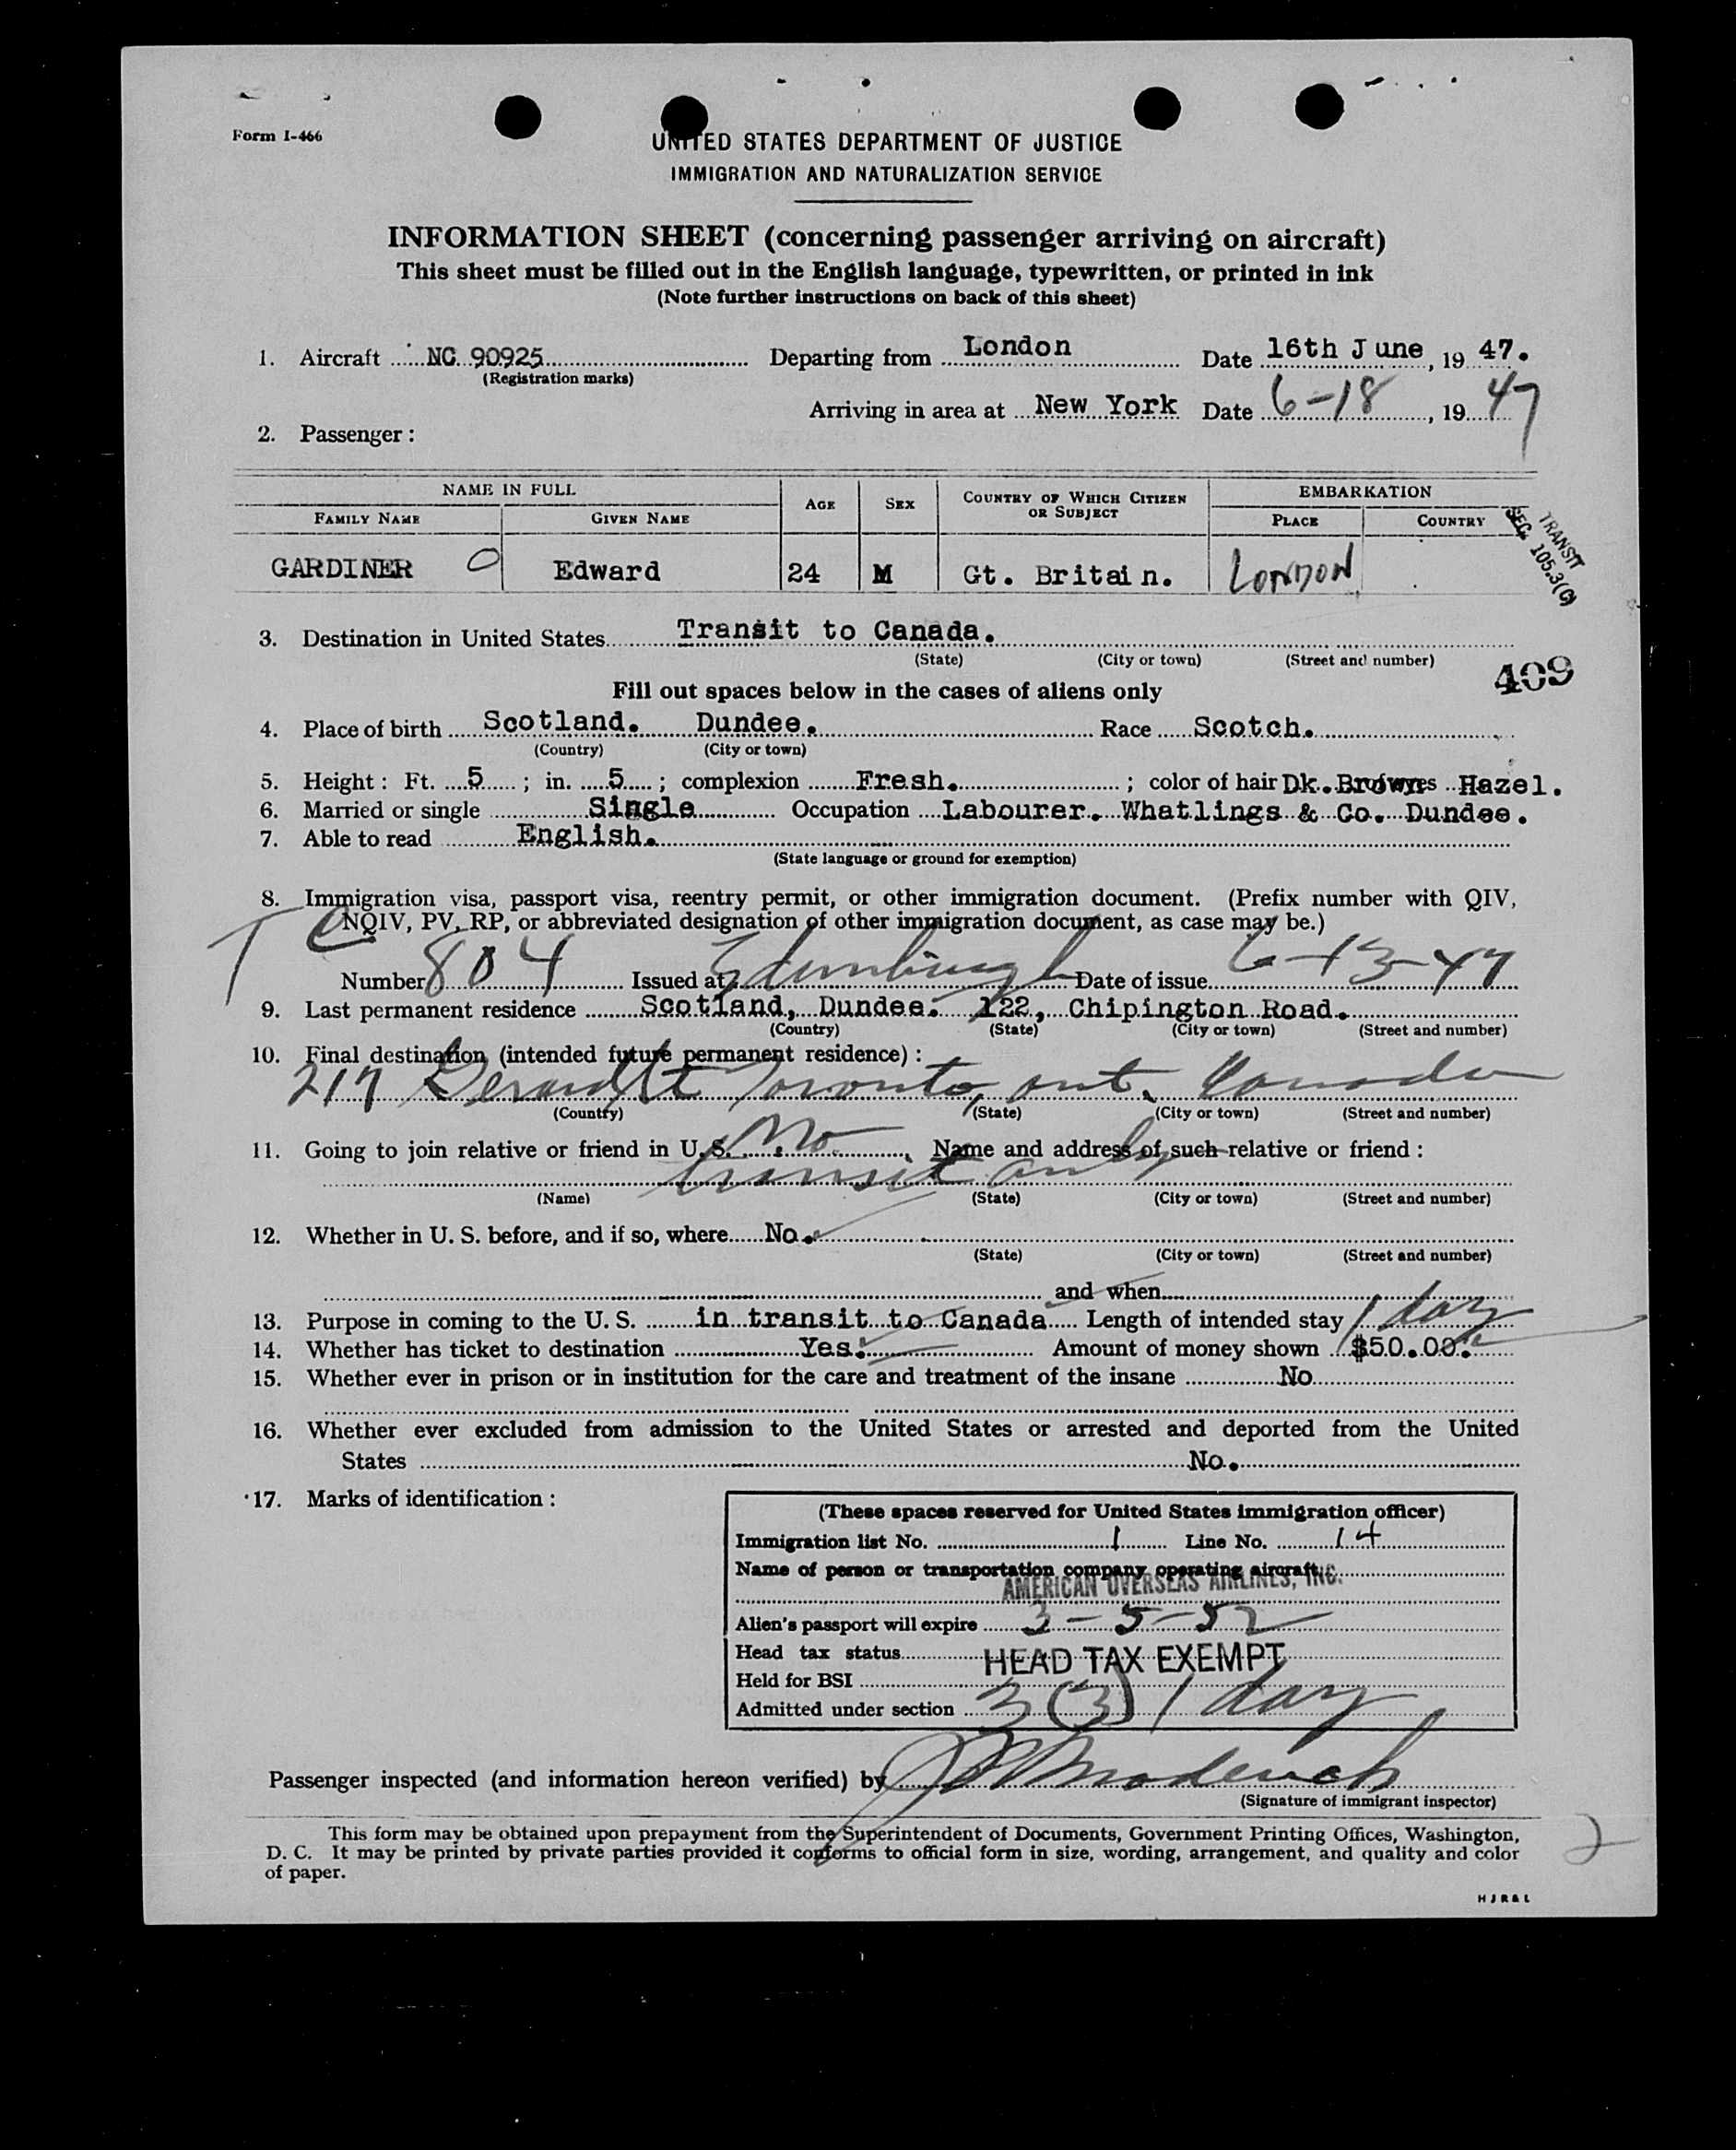 Form I-466
UNITED STATES DEPARTMENT OF JUSTICE
IMMIGRATION AND NATURALIZATION SERVICE
INFORMATION SHEET (concerning passenger arriving on aircraft)
This sheet must be filled out in the English language, typewritten, or printed in ink
(Note further instructions on back of this sheet)
1. Aircraft NC 90925 Departing from London Date 16th June, 19 47.
(Registration marks)
Arriving in area at New York Date 6-18, 19 47
2. Passenger:
NAME IN FULL AGE SEX COUNTRY OF WHICH CITIZEN OR SUBJECT EMBARKATION
FAMILY NAME GIVEN NAME PLACE COUNTRY
TRANSIT
SEC. 105.3(C)
GARDINER O Edward 24 M Gt. Britain. LONDON
3. Destination in United States Transit to Canada.
(State) (City or town) (Street and number)
409
Fill out spaces below in the cases of aliens only
4. Place of birth Scotland. Dundee. Race Scotch.
(Country) (City or town)
5. Height: Ft. 5; in. 5; complexion Fresh.; color of hair Dk. Brown eyes Hazel.
6. Married or single Single Occupation Labourer. Whatlings & Co. Dundee.
7. Able to read English.
(State language or ground for exemption)
8. Immigration visa, passport visa, reentry permit, or other immigration document. (Prefix number with QIV,
NQIV, PV, RP, or abbreviated designation of other immigration document, as case may be.)
T C
Number 804 Issued at Edinburgh Date of issue 6-13-47
9. Last permanent residence Scotland, Dundee. 122, Chipington Road.
(Country) (State) (City or town) (Street and number)
10. Final destination (intended future permanent residence):
217 St Toronto, Ont. Canada
(Country) (State) (City or town) (Street and number)
11. Going to join relative or friend in U. S. No, Name and address of such relative or friend:
transit only
(Name) (State) (City or town) (Street and number)
12. Whether in U. S. before, and if so, where No.
(State) (City or town) (Street and number)
and when
13. Purpose in coming to the U. S. in transit to Canada Length of intended stay 1 day
14. Whether has ticket to destination Yes. Amount of money shown $50.00.
15. Whether ever in prison or in institution for the care and treatment of the insane No
16. Whether ever excluded from admission to the United States or arrested and deported from the United
States No.
17. Marks of identification:
(These spaces reserved for United States immigration officer)
Immigration list No. 1 Line No. 14
Name of person or transportation company operating aircraft
AMERICAN OVERSEAS AIRLINES, INC.
Alien's passport will expire 3-5-52
Head tax status HEAD TAX EXEMPT
Held for BSI
Admitted under section 3(3) 1 day
Passenger inspected (and information hereon verified) by
(Signature of immigrant inspector)
This form may be obtained upon prepayment from the Superintendent of Documents, Government Printing Offices, Washington,
D. C. It may be printed by private parties provided it conforms to official form in size, wording, arrangement, and quality and color
of paper.
2
H J R & L